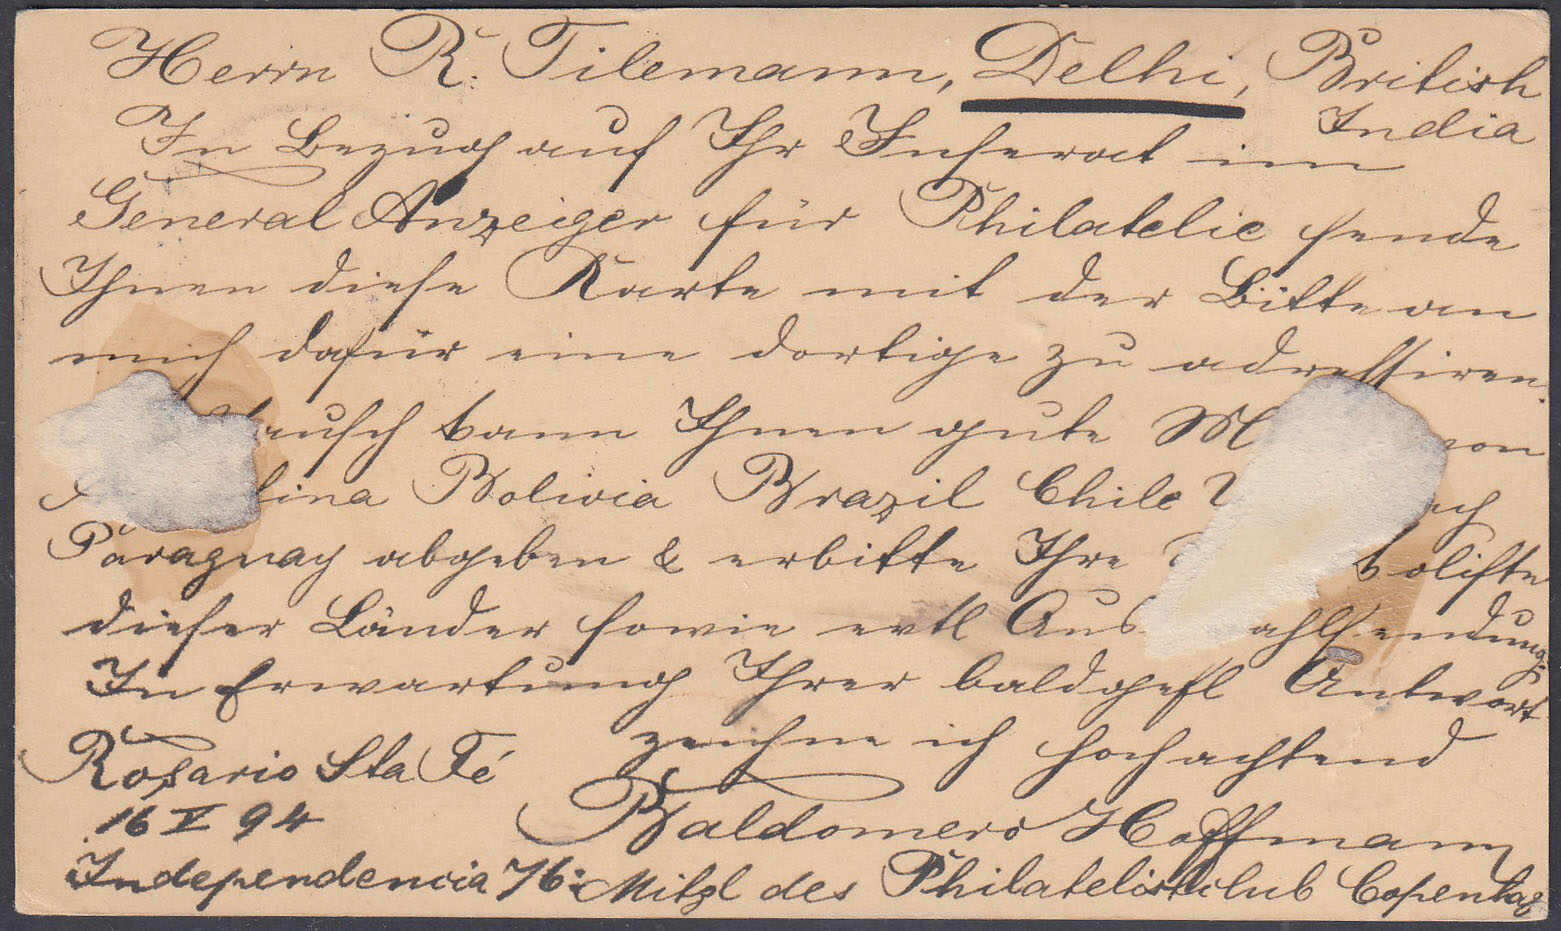 Herrn R. Tilemann, Delhi, British
India
In Bezug auf Ihr Inserat im
General Anzeiger für Philatelie sende
Ihnen diese Karte mit der Bitte an
mich dafür eine dortige zu adressiren.
ausch kann Ihnen gute M von
tina Bolivia Brazil Chile
Paraguay abgeben & erbitte Ihre koliste
dieser Länder sowie evtl Aus ahlsendung.
In Erwartung Ihrer baldgefl Antwort
zeichne ich hochachtend
Rosario Sta Fé
Baldomero Hoffmann
16 V 94
Independencia 76: Mitgl des Philatelistclub Copenhag